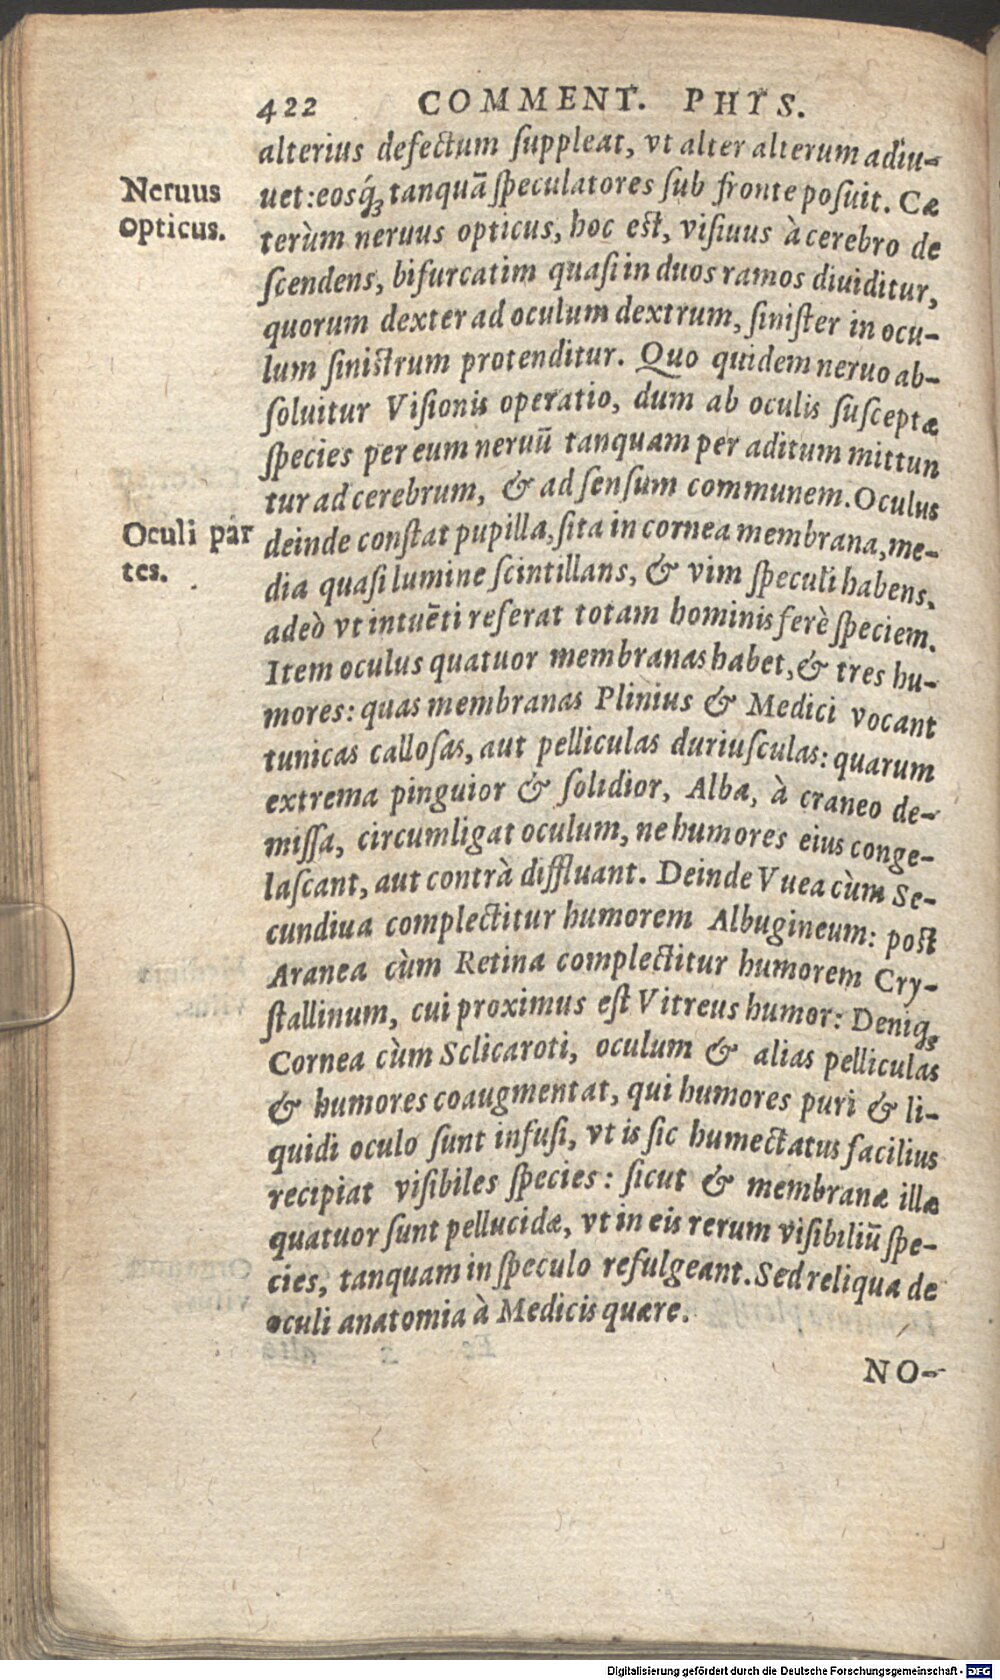 422 COMMENT. PHYS.
alterius defectum suppleat, vt alter alterum adiu-
Neruus
uet: eosq́; tanquā speculatores sub fronte posuit. Cæ
opticus.
terùm neruus opticus, hoc est, visiuus à cerebro de
scendens, bifurcatim quasi in duos ramos diuiditur,
quorum dexter ad oculum dextrum, sinister in ocu-
lum sinistrum protenditur. Quo quidem neruo ab-
soluitur Visionis operatio, dum ab oculis susceptæ
species per eum neruū tanquam per aditum mittun
tur ad cerebrum, & ad sensum communem. Oculus
Oculi par
deinde constat pupilla, sita in cornea membrana, me-
tes.
dia quasi lumine scintillans, & vim speculi habens,
adeò vt intuēti referat totam hominis ferè speciem.
Item oculus quatuor membranas habet, & tres hu-
mores: quas membranas Plinius & Medici vocant
tunicas callosas, aut pelliculas duriusculas: quarum
extrema pinguior & solidior, Alba, à craneo de-
missa, circumligat oculum, ne humores eius conge-
lascant, aut contrà diffluant. Deinde Vuea cùm Se-
cundiua complectitur humorem Albugineum: post
Aranea cùm Retina complectitur humorem Cry-
stallinum, cui proximus est Vitreus humor: Deniq;
Cornea cùm Sclicaroti, oculum & alias pelliculas
& humores coaugmentat, qui humores puri & li-
quidi oculo sunt infusi, vt is sic humectatus facilius
recipiat visibiles species: sicut & membranæ illæ
quatuor sunt pellucidæ, vt in eis rerum visibiliū spe-
cies, tanquam in speculo refulgeant. Sed reliqua de
oculi anatomia à Medicis quære.
NO-
Digitalisierung gefördert durch die Deutsche Forschungsgemeinschaft - DFG